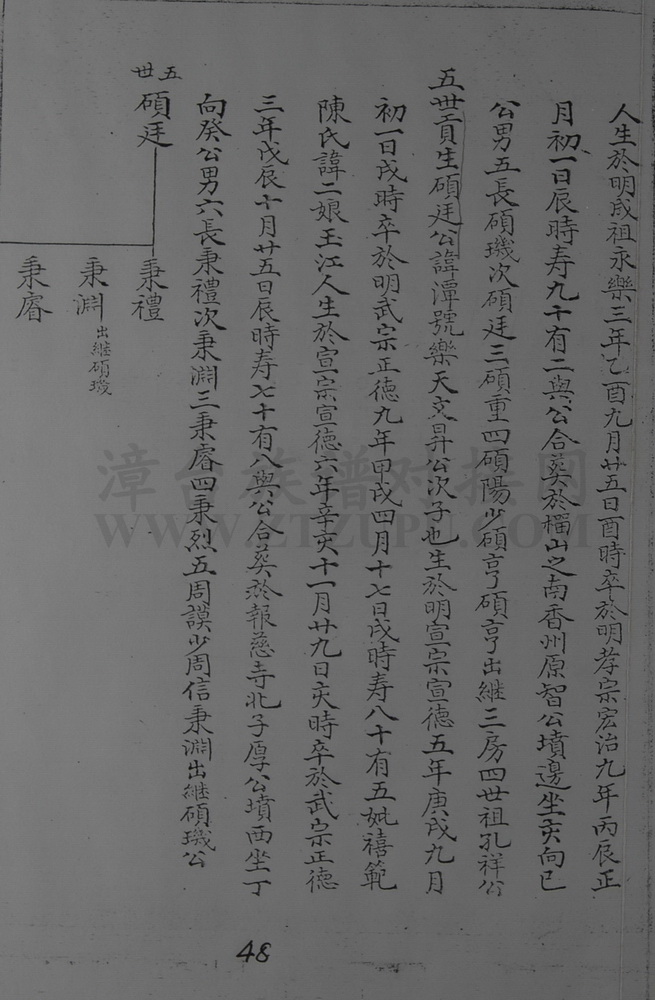 人生於明成祖永樂三年乙酉九月廿五日酉時卒於明孝宗宏治九年丙辰正
月初一日辰時寿九十有二與公合葬於榴山之南香州原智公墳邊坐亥向巳
公男五長碩璣次碩廷三碩重四碩陽少碩亨碩亨出継三房四世祖孔祥公
五世貢生碩廷公諱潭號樂天文昇公次子也生於明宣宗宣德五年庚戌九月
初一日戌時卒於明武宗正德九年甲戌四月十七日戌時寿八十有五妣禧範
陳氏諱二娘玉江人生於宣宗宣德六年辛亥十一月廿九日亥時卒於武宗正德
三年戊辰十月廿五日辰時寿七十有八與公合葬於報慈寺北子厚公墳西坐丁
向癸公男六長秉禮次秉淵三秉睿四秉烈五周謨少周信秉淵出継碩璣公
五世
碩廷
秉禮
秉淵 出継碩璣
秉睿
48
漳台族譜对接网
WWW.ZTZUPU.COM